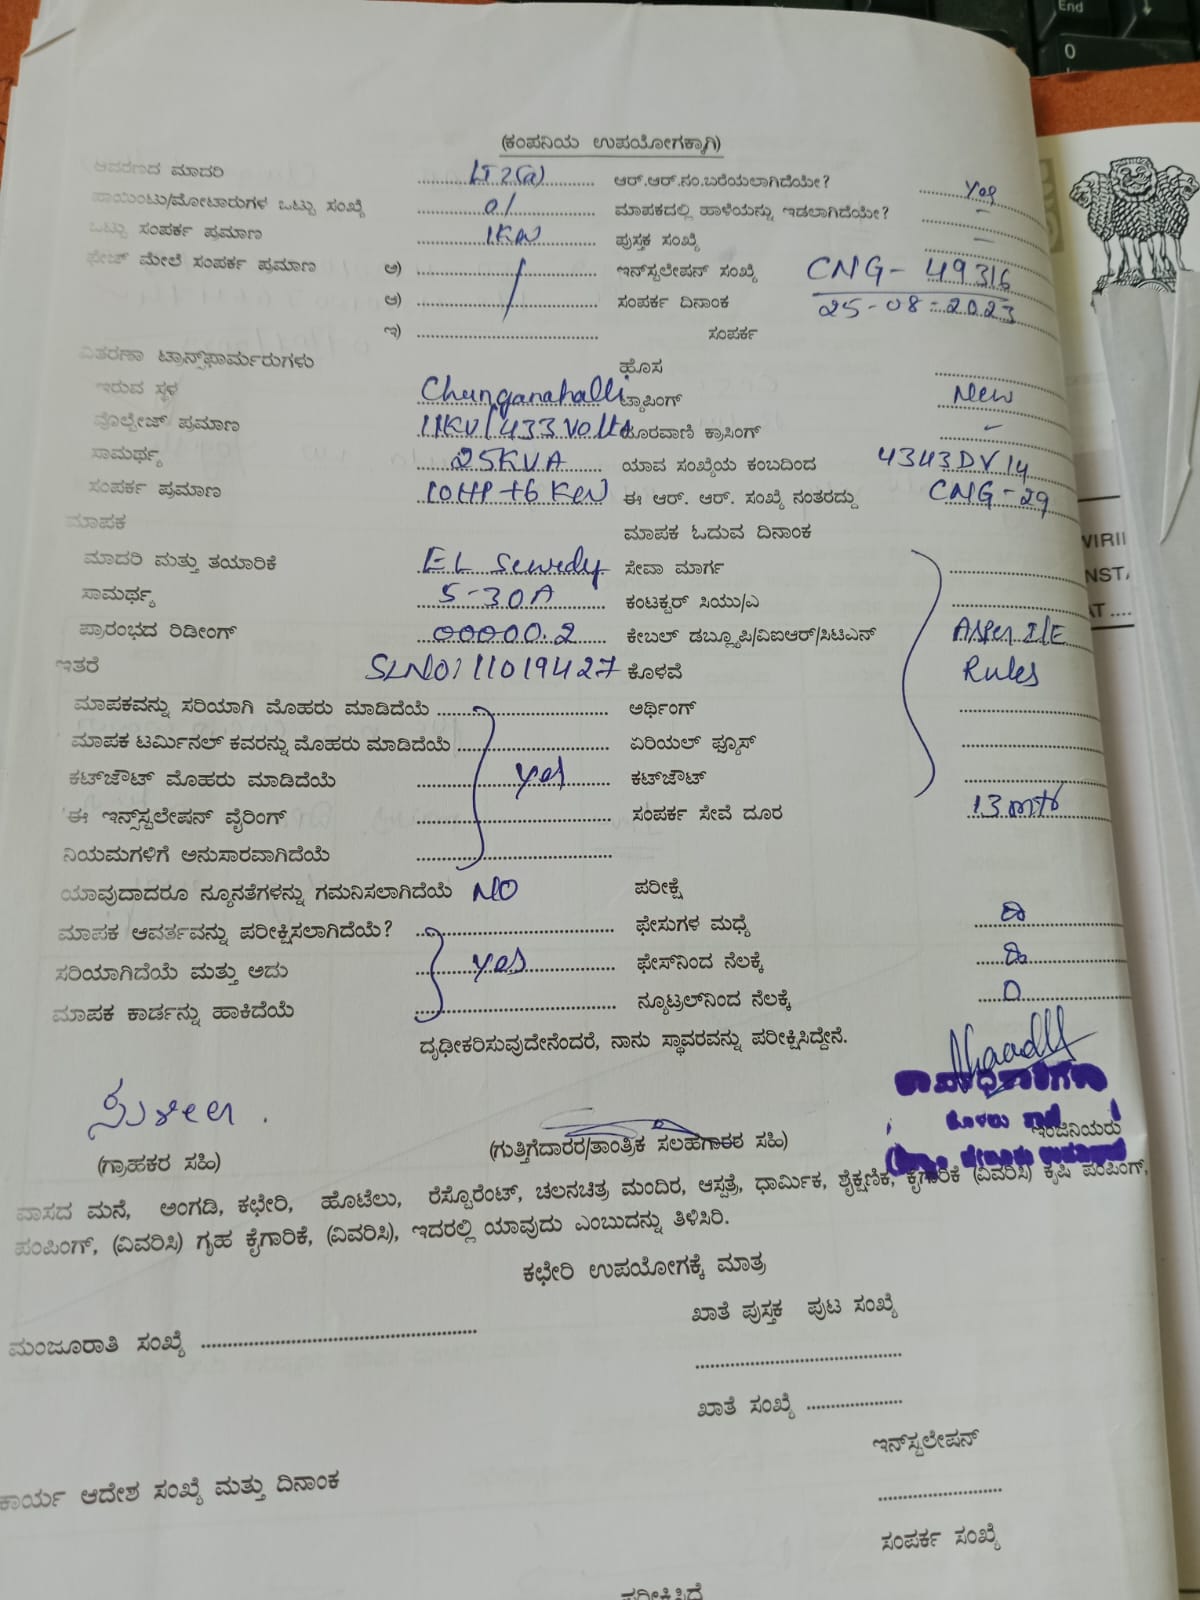 End
0
(ಕಂಪನಿಯ ಉಪಯೋಗಕ್ಕಾಗಿ)
ಆವರಣದ ಮಾದರಿ LT 2(a) ಆರ್.ಆರ್.ನಂ.ಬರೆಯಲಾಗಿದೆಯೇ? yes
ಪಾಯಿಂಟು/ಮೋಟಾರುಗಳ ಒಟ್ಟು ಸಂಖ್ಯೆ 01 ಮಾಪಕದಲ್ಲಿ ಹಾಳೆಯನ್ನು ಇಡಲಾಗಿದೆಯೇ? -
ಒಟ್ಟು ಸಂಪರ್ಕ ಪ್ರಮಾಣ 1KW ಪುಸ್ತಕ ಸಂಖ್ಯೆ -
ಫೇಜ್ ಮೇಲೆ ಸಂಪರ್ಕ ಪ್ರಮಾಣ ಅ) ಇನ್‌ಸ್ಟಲೇಷನ್ ಸಂಖ್ಯೆ CNG - 49316
ಆ) ಸಂಪರ್ಕ ದಿನಾಂಕ 25-08-2023
ಇ) ಸಂಪರ್ಕ
ವಿತರಣಾ ಟ್ರಾನ್ಸ್‌ಫಾರ್ಮರುಗಳು ಹೊಸ
ಇರುವ ಸ್ಥಳ Chunganahalli ಟ್ಯಾಪಿಂಗ್ New
ವೋಲ್ಟೇಜ್ ಪ್ರಮಾಣ 11KV/433 Volts ದೂರವಾಣಿ ಕ್ರಾಸಿಂಗ್ -
ಸಾಮರ್ಥ್ಯ 25KVA ಯಾವ ಸಂಖ್ಯೆಯ ಕಂಬದಿಂದ 4343DV14
ಸಂಪರ್ಕ ಪ್ರಮಾಣ 10HP+6KW ಈ ಆರ್. ಆರ್. ಸಂಖ್ಯೆ ನಂತರದ್ದು CNG-29
ಮಾಪಕ ಮಾಪಕ ಓದುವ ದಿನಾಂಕ
ಮಾದರಿ ಮತ್ತು ತಯಾರಿಕೆ EL Sewedy ಸೇವಾ ಮಾರ್ಗ
ಸಾಮರ್ಥ್ಯ 5-30A ಕಂಟಕ್ಟರ್ ಸಿಯು/ಎ
ಪ್ರಾರಂಭದ ರಿಡೀಂಗ್ 00000.2 ಕೇಬಲ್ ಡಬ್ಲ್ಯೂಪಿ/ವಿಐಆರ್/ಸಿಟಿಎನ್ Asper I/E
ಇತರೆ SLNO: 11019427 ಕೊಳವೆ Rules
ಮಾಪಕವನ್ನು ಸರಿಯಾಗಿ ಮೊಹರು ಮಾಡಿದೆಯೆ ಅರ್ಥಿಂಗ್
ಮಾಪಕ ಟರ್ಮಿನಲ್ ಕವರನ್ನು ಮೊಹರು ಮಾಡಿದೆಯೆ ಏರಿಯಲ್ ಫ್ಯೂಸ್
ಕಟ್‌ಔಟ್ ಮೊಹರು ಮಾಡಿದೆಯೆ yes ಕಟ್‌ಔಟ್
ಈ ಇನ್ಸ್‌ಸ್ಟಲೇಷನ್ ವೈರಿಂಗ್ ಸಂಪರ್ಕ ಸೇವೆ ದೂರ 13 mtr
ನಿಯಮಗಳಿಗೆ ಅನುಸಾರವಾಗಿದೆಯೆ
ಯಾವುದಾದರೂ ನ್ಯೂನತೆಗಳನ್ನು ಗಮನಿಸಲಾಗಿದೆಯೆ NO ಪರೀಕ್ಷೆ
ಮಾಪಕ ಆವರ್ತವನ್ನು ಪರೀಕ್ಷಿಸಲಾಗಿದೆಯೆ? ಫೇಸುಗಳ ಮಧ್ಯೆ
ಸರಿಯಾಗಿದೆಯೆ ಮತ್ತು ಅದು yes ಫೇಸ್‌ನಿಂದ ನೆಲಕ್ಕೆ
ಮಾಪಕ ಕಾರ್ಡನ್ನು ಹಾಕಿದೆಯೆ ನ್ಯೂಟ್ರಲ್‌ನಿಂದ ನೆಲಕ್ಕೆ 0
ದೃಢೀಕರಿಸುವುದೇನೆಂದರೆ, ನಾನು ಸ್ಥಾವರವನ್ನು ಪರೀಕ್ಷಿಸಿದ್ದೇನೆ.
ಇಂಜಿನಿಯರು
(ಗ್ರಾಹಕರ ಸಹಿ) (ಗುತ್ತಿಗೆದಾರರ/ತಾಂತ್ರಿಕ ಸಲಹೆಗಾರರ ಸಹಿ)
ವಾಸದ ಮನೆ, ಅಂಗಡಿ, ಕಛೇರಿ, ಹೊಟೆಲು, ರೆಸ್ಟೊರೆಂಟ್, ಚಲನಚಿತ್ರ ಮಂದಿರ, ಆಸ್ಪತ್ರೆ, ಧಾರ್ಮಿಕ, ಶೈಕ್ಷಣಿಕ, ಕೈಗಾರಿಕೆ (ವಿವರಿಸಿ) ಕೃಷಿ ಪಂಪಿಂಗ್,
ಪಂಪಿಂಗ್, (ವಿವರಿಸಿ) ಗೃಹ ಕೈಗಾರಿಕೆ, (ವಿವರಿಸಿ), ಇದರಲ್ಲಿ ಯಾವುದು ಎಂಬುದನ್ನು ತಿಳಿಸಿರಿ.
ಕಛೇರಿ ಉಪಯೋಗಕ್ಕೆ ಮಾತ್ರ
ಖಾತೆ ಪುಸ್ತಕ ಪುಟ ಸಂಖ್ಯೆ
ಮಂಜೂರಾತಿ ಸಂಖ್ಯೆ
ಖಾತೆ ಸಂಖ್ಯೆ
ಇನ್‌ಸ್ಟಲೇಷನ್
ಕಾರ್ಯ ಆದೇಶ ಸಂಖ್ಯೆ ಮತ್ತು ದಿನಾಂಕ
ಸಂಪರ್ಕ ಸಂಖ್ಯೆ
ಪರೀಕ್ಷಿಸಿದೆ